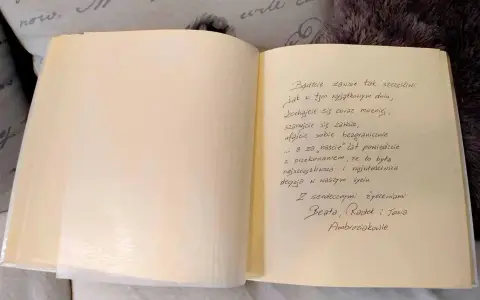 now,
will
Bądźcie zawsze tak szczęśliwi
jak w tym wyjątkowym dniu,
kochajcie się coraz mocniej,
szanujcie się zawsze,
ufajcie sobie bezgranicznie
... a za "naście" lat powiedzcie
z przekonaniem, że to była
najszczęśliwsza i najcudowniejsza
decyzja w waszym życiu
Z serdecznymi życzeniami
Beata, Radek i
Ambroziakowie